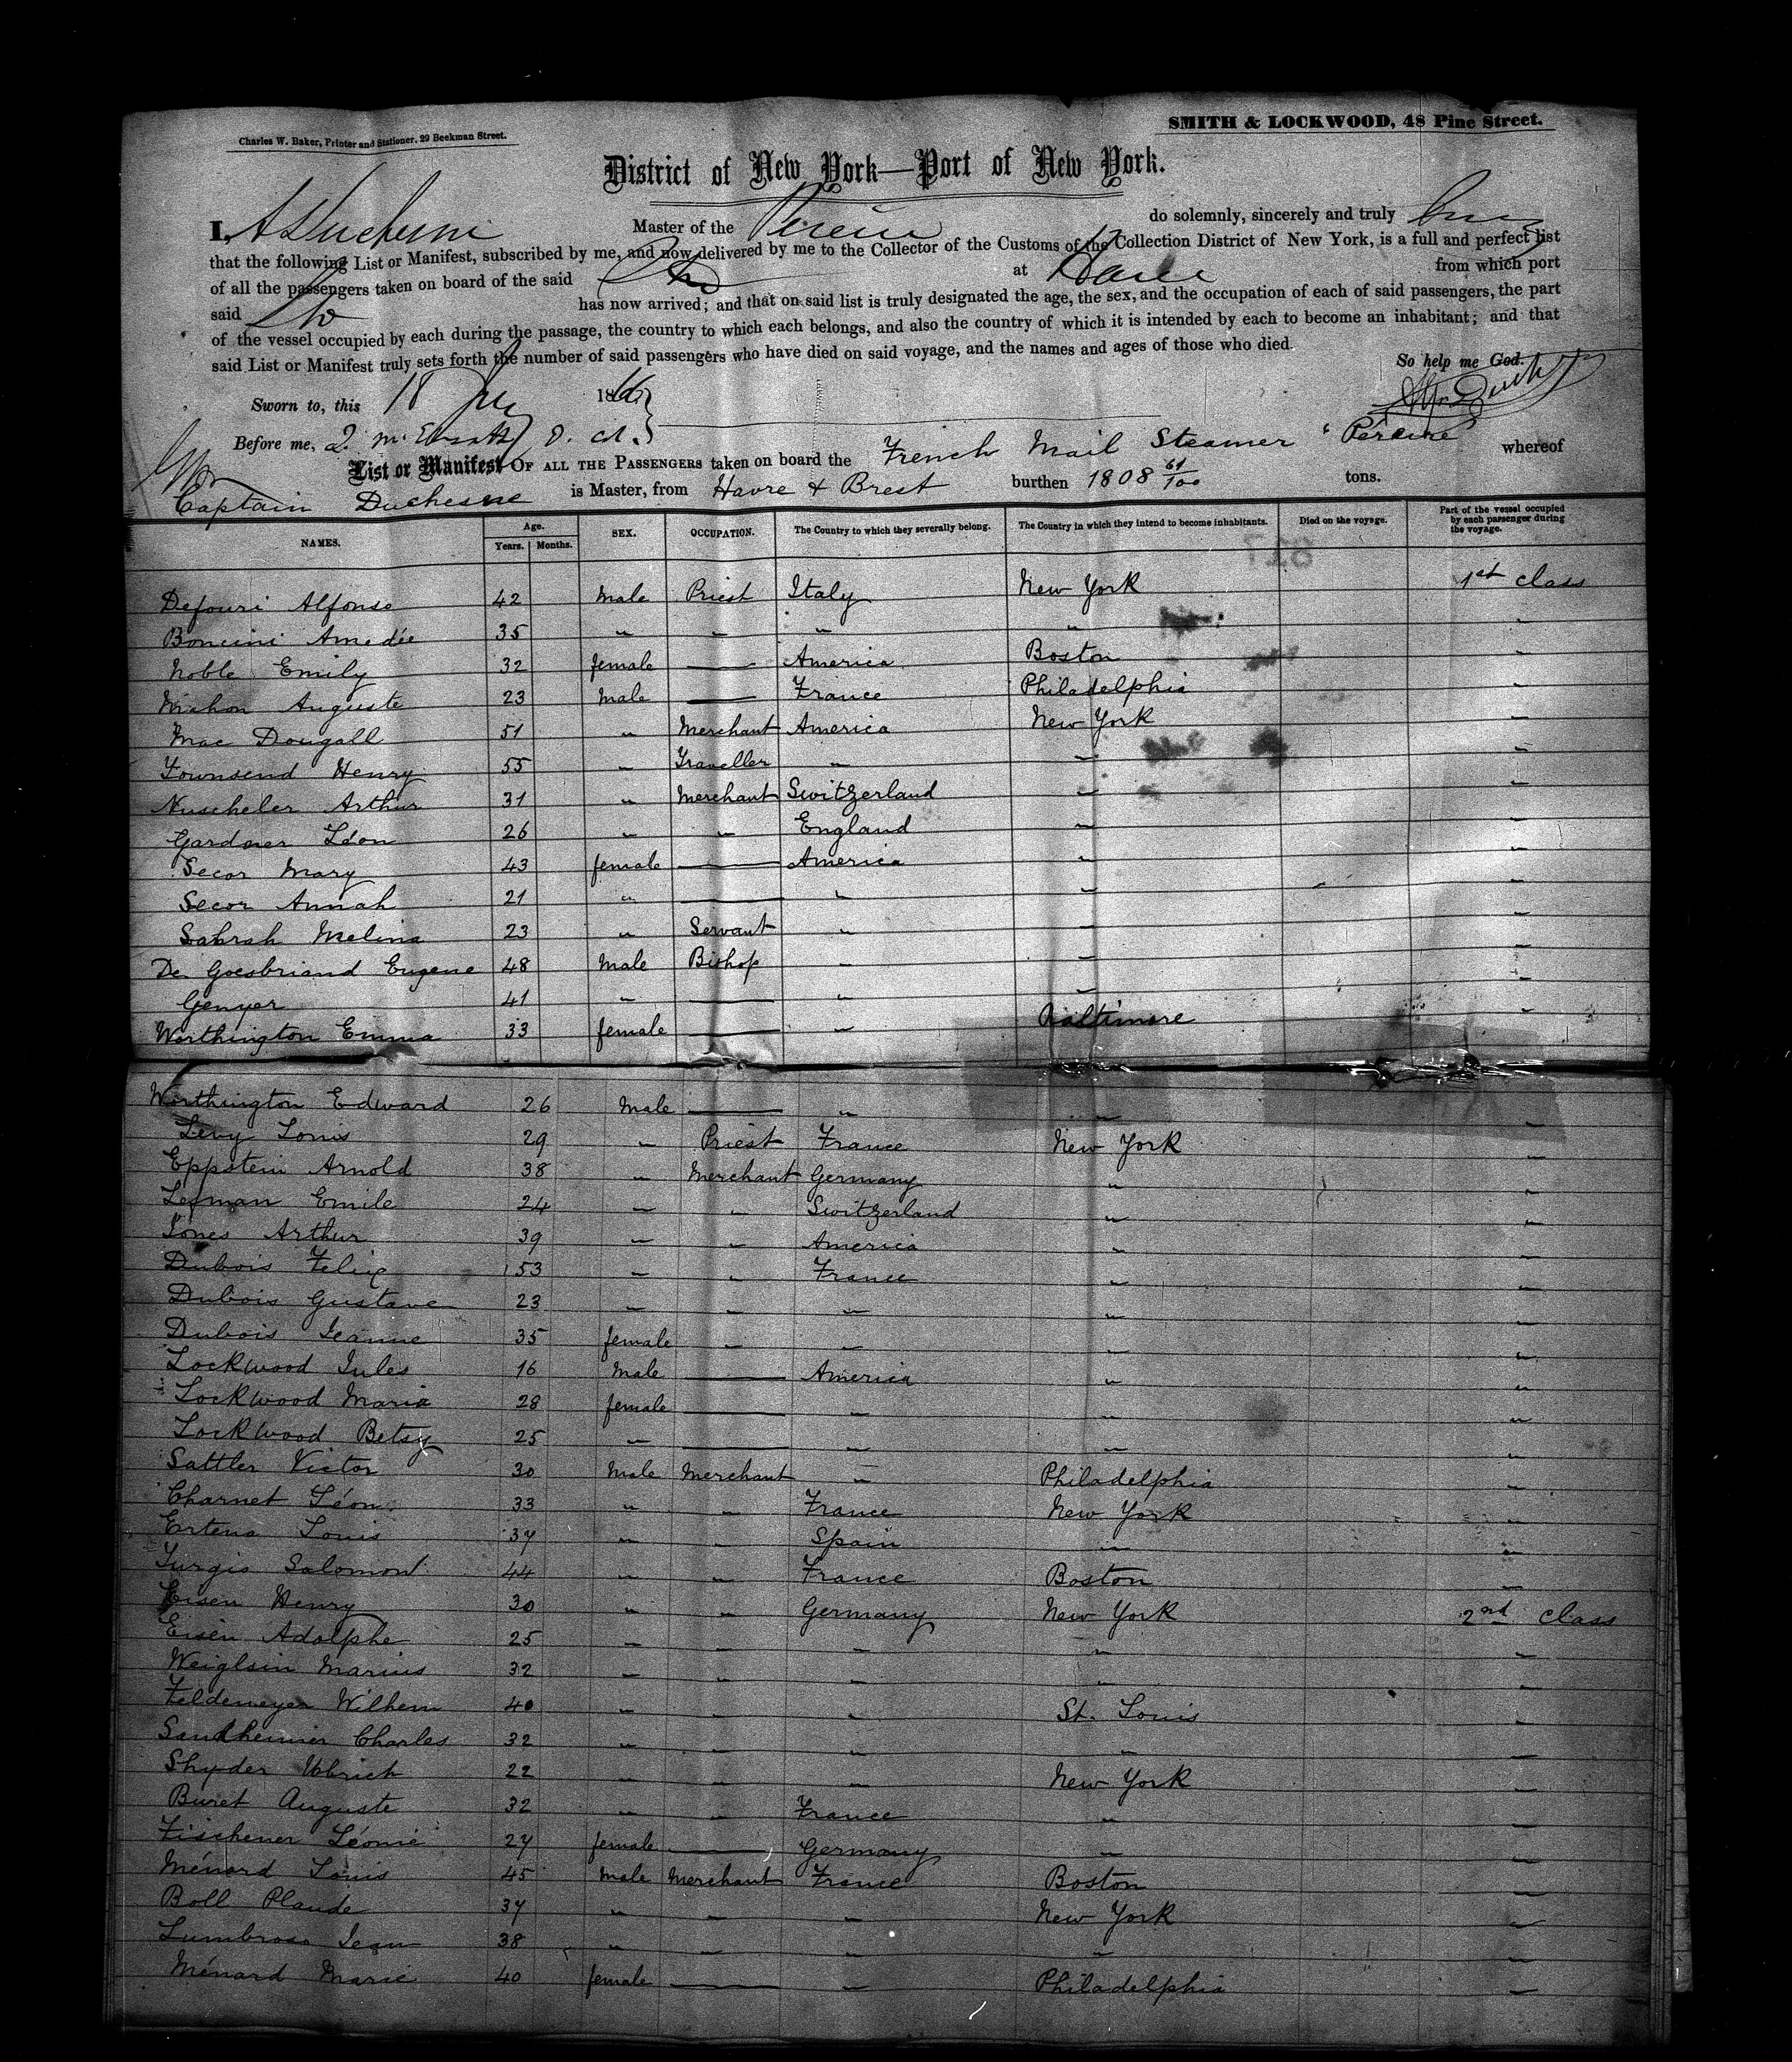 Charles W. Baker, Printer and Stationer, 29 Beekman Street.
SMITH & LOCKWOOD, 48 Pine Street.
District of New York—Port of New York.
I, A Duchesne Master of the Pereire do solemnly, sincerely and truly
that the following List or Manifest, subscribed by me, and now delivered by me to the Collector of the Customs of the Collection District of New York, is a full and perfect list
of all the passengers taken on board of the said at Havre from which port
said has now arrived; and that on said list is truly designated the age, the sex, and the occupation of each of said passengers, the part
of the vessel occupied by each during the passage, the country to which each belongs, and also the country of which it is intended by each to become an inhabitant; and that
said List or Manifest truly sets forth the number of said passengers who have died on said voyage, and the names and ages of those who died.
So help me God.
Sworn to, this 18 186
Before me,
List or Manifest OF ALL THE PASSENGERS taken on board the French Mail Steamer "Péreire whereof
Captain Duchesne is Master, from Havre & Brest burthen 1808 61/100 tons.
NAMES. Age. Years. Months. SEX. OCCUPATION. The Country to which they severally belong. The Country in which they intend to become inhabitants. Died on the voyage. Part of the vessel occupied by each passenger during the voyage.
Defouri Alfonse 42 Male Priest Italy New York 1st class
Boncini Amedée 35 " " " " "
Noble Emily 32 female — America Boston "
Michon Auguste 23 Male — France Philadelphia "
Mac Dougall 51 " Merchant America New York "
Townsend Henry 55 " Traveller " " "
Nuscheler Arthur 31 " Merchant Switzerland " "
Gardner Léon 26 " " England " "
Secor Mary 43 female — America " "
Secor Annah 21 " — " " "
Sahrah Melina 23 " Servant " " "
De Goesbriand Eugene 48 Male Bishop " " "
Genyer 41 " — " " "
Worthington Emma 33 female — " Baltimore "
Worthington Edward 26 Male — " " "
Levy Louis 29 " Priest France New York "
Eppstein Arnold 38 " Merchant Germany " "
Lesman Emile 24 " " Switzerland " "
Jones Arthur 39 " " America " "
Dubois Felix 53 " " France " "
Dubois Gustave 23 " " " " "
Dubois Jeanne 35 female " " " "
Lockwood Jules 16 Male — America " "
Lockwood Maria 28 female — " " "
Lockwood Betsy 25 " — " " "
Sattler Victor 30 Male Merchant " Philadelphia "
Charnet Léon 33 " " France New York "
Ertena Louis 37 " " Spain " "
Turgis Salomon 44 " " France Boston "
Eisen Henry 30 " " Germany New York 2nd class
Eisen Adolphe 25 " " " " "
Weiglsin Marius 32 " " " " "
Feldemeyer Wilhem 40 " " " St. Louis "
Sandheimer Charles 32 " " " " "
Shyder Ulbrich 22 " " " New York "
Buret Auguste 32 " " France " "
Fischener Léonie 27 female — Germany " "
Ménard Louis 45 Male Merchant France Boston "
Boll Plaude 37 " " " New York "
Lumbroso Jean 38 " " " " "
Ménard Marie 40 female — " Philadelphia "